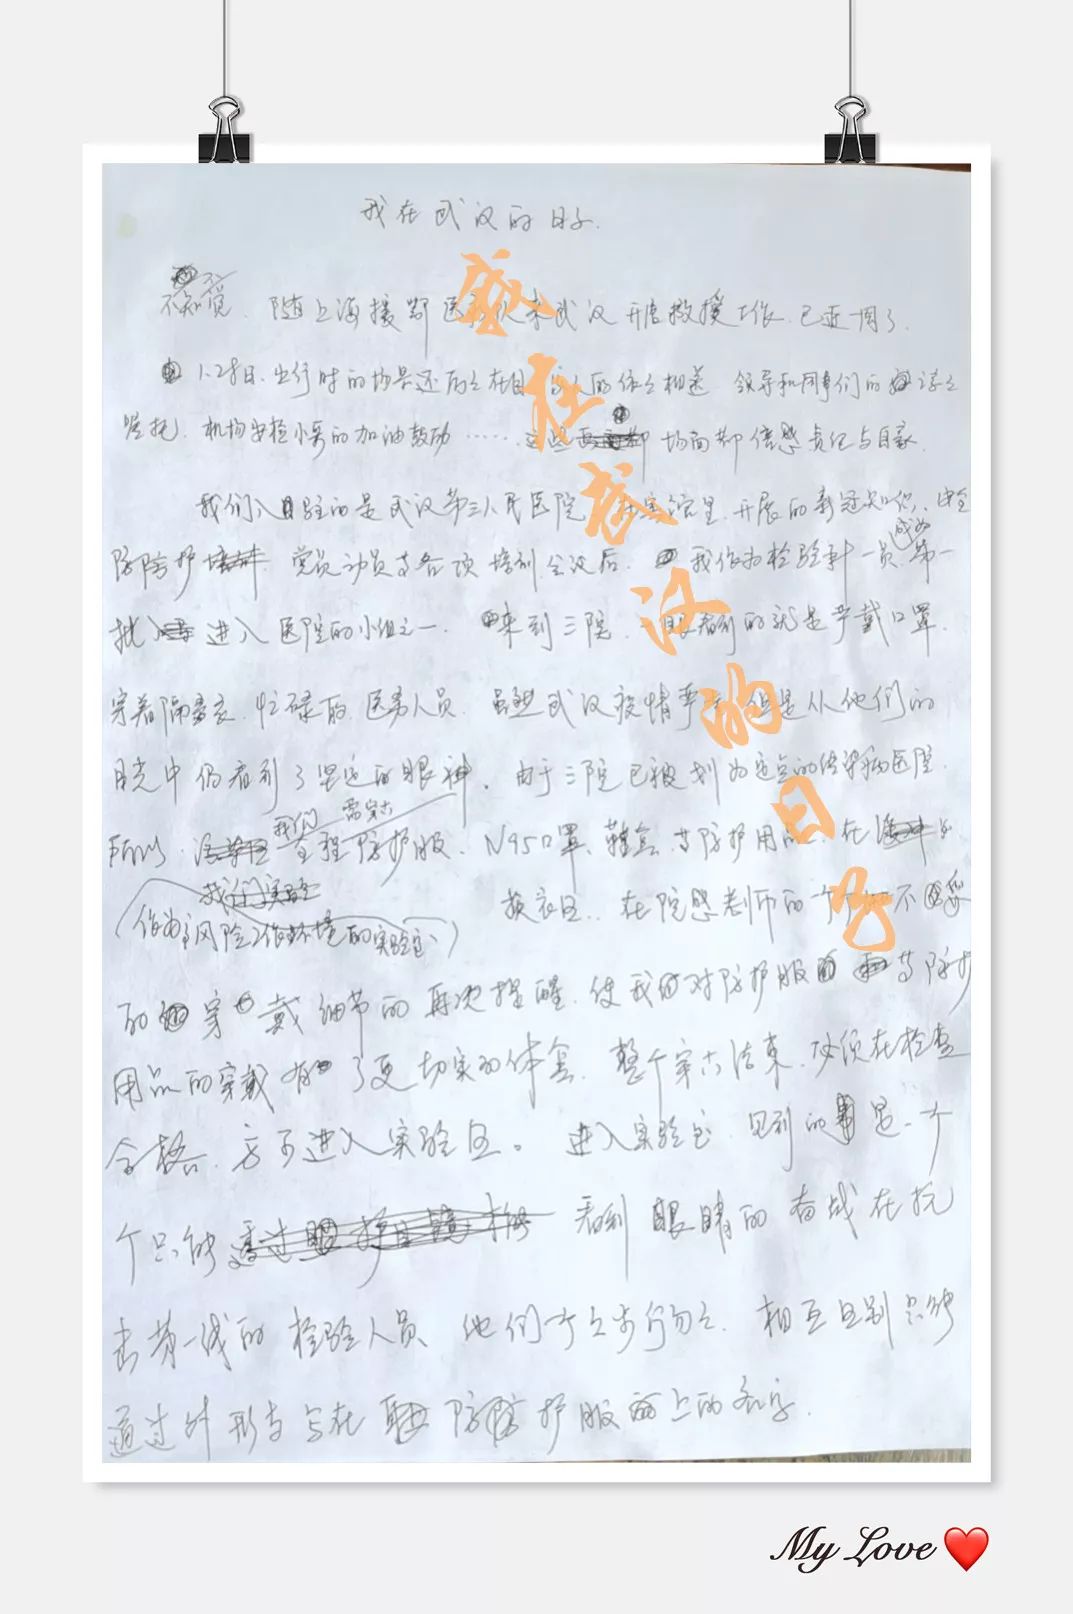 我在武汉的日子.
不知不觉,随上海援鄂医疗队来武汉开展救援工作,已近一周了.
1.28日,出行时的场景还历历在目,家人的依依相送,领导和同事们的谆谆
嘱托,机场安检小哥的加油鼓励……这些场面都倍感 与目家.
我们入驻的是武汉第三人民医院,在宾馆里,开展的新冠知识,安全
防护,党员动员等各项培训会议后,我作为检验科一员,成为第一
批进入医院的小组之一.来到三院,一眼看到的就是严戴口罩,
穿着隔离衣,忙碌的医务人员.虽然武汉疫情严重,但是从他们的
目光中仍看到了坚定的眼神.由于三院已被划为定点的传染病医院,
所以,我们需穿全程防护服、N95口罩、鞋套、等防护用品.在
(作为高风险工作环境的实验室) 换衣区,在院感老师的一个
的穿戴细节的再次提醒,使我们对防护服等防护
用品的穿戴有了更切实的体会.整个穿 结束,必须在检查
合格,方可进入实验区。进入实验室,见到的是一个
个只能看到眼睛的奋战在抗
击第一线的检验人员,他们个个步行匆匆,相互区别只能
通过外形与写在防护服上的名字.
我在武汉的日子
My Love ❤️